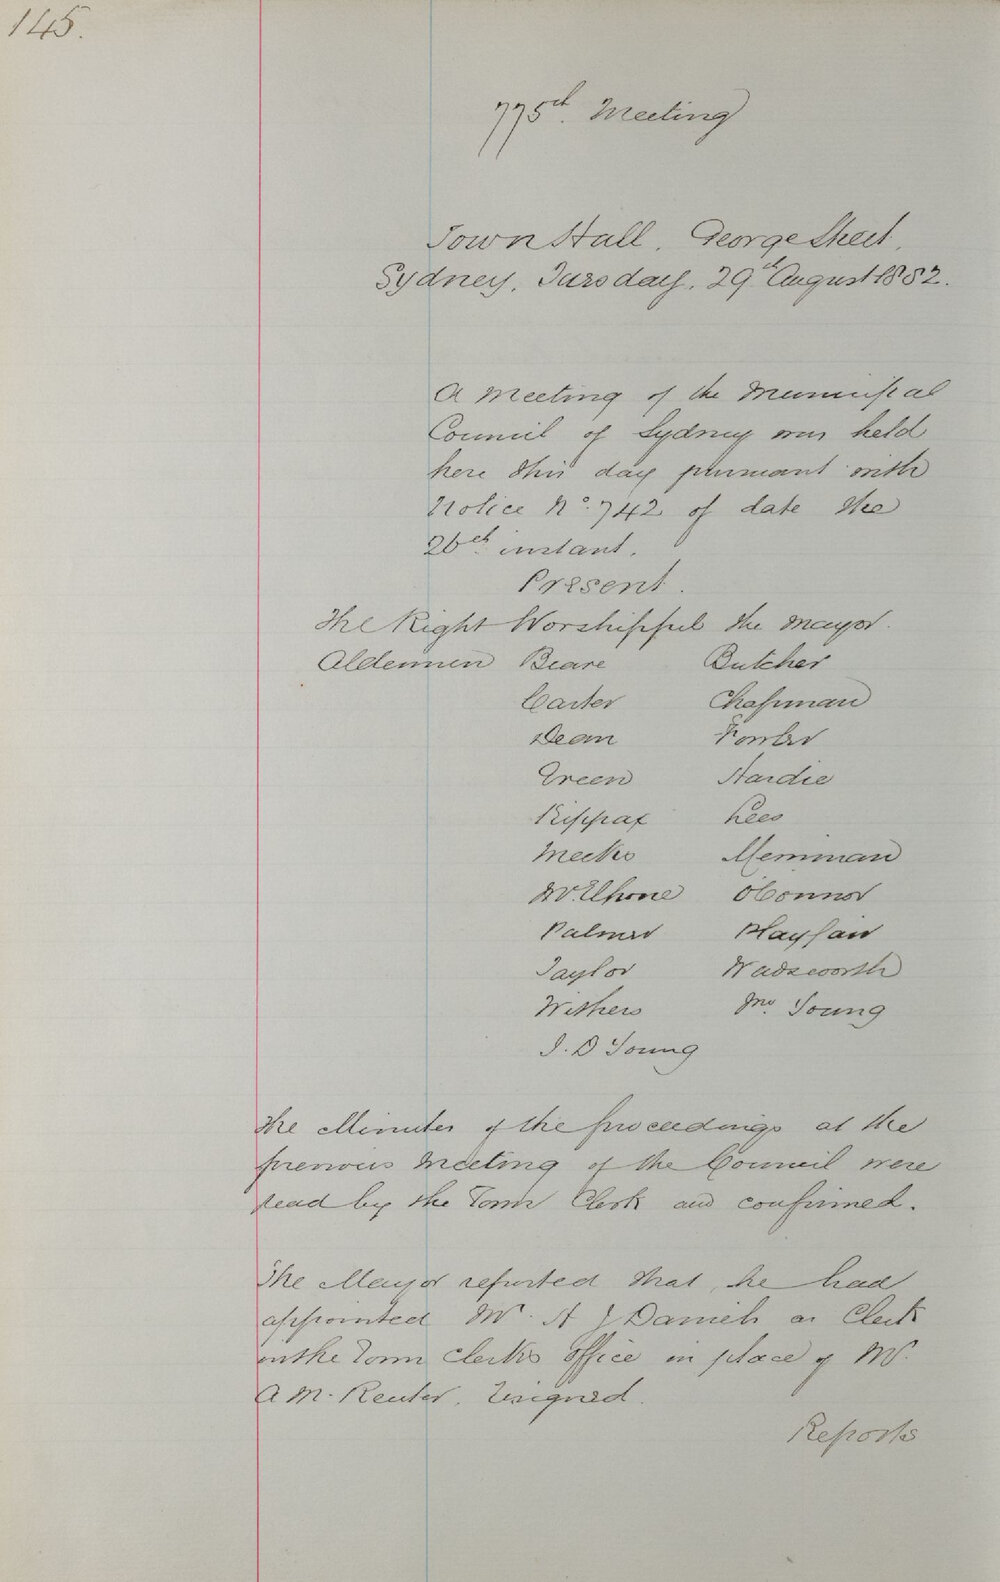 145.
775th. Meeting
Town Hall. George Street.
Sydney, Tuesday, 29th August 1882.
A Meeting of the Municipal
Council of Sydney was held
here this day pursuant with
Notice No. 742 of date the
26th instant.
Present.
The Right Worshipful the Mayor.
Aldermen Beare Butcher
Carter Chapman
Dean Fowler
Green Hardie
Kippax Lees
Meeks Merriman
McElhone O'Connor
Palmer Playfair
Taylor Wadsworth
Withers Jno. Young
J. D Young
The Minutes of the proceedings at the
previous Meeting of the Council were
read by the Town Clerk and confirmed.
The Mayor reported that he had
appointed Mr. A J Daniels as Clerk
in the Town Clerks Office in place of Mr.
A. M. Reuter, resigned.
Reports